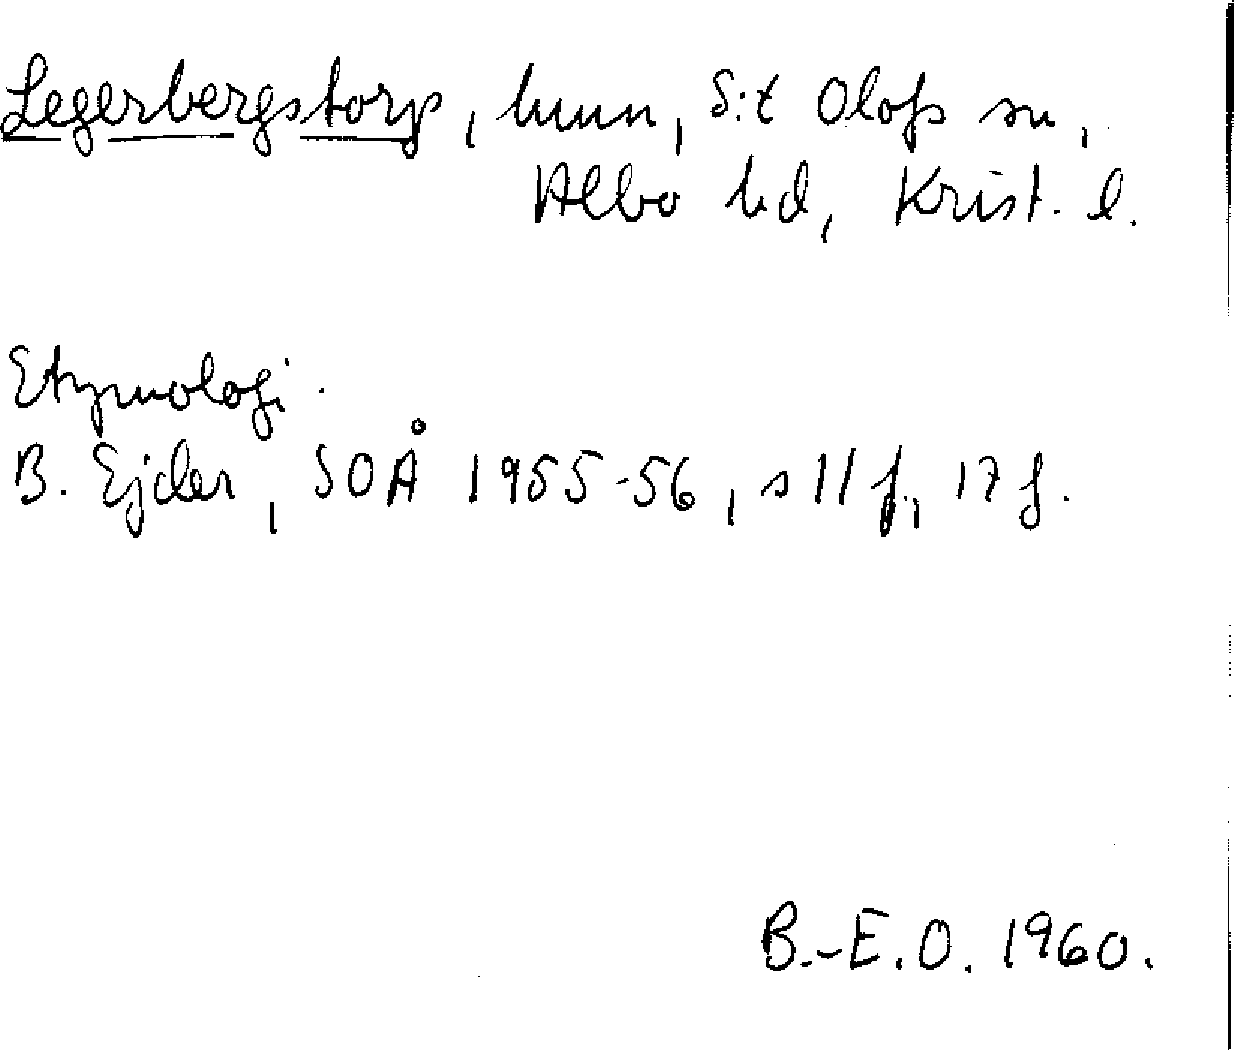 Legerbergstorp, hmn, S:t Olofs sn,
Albo hd, Krist. l.
Etymologi.
B. Ejder, SOÅ 1955-56, s 11 f, 17 f.
B.-E.O. 1960.